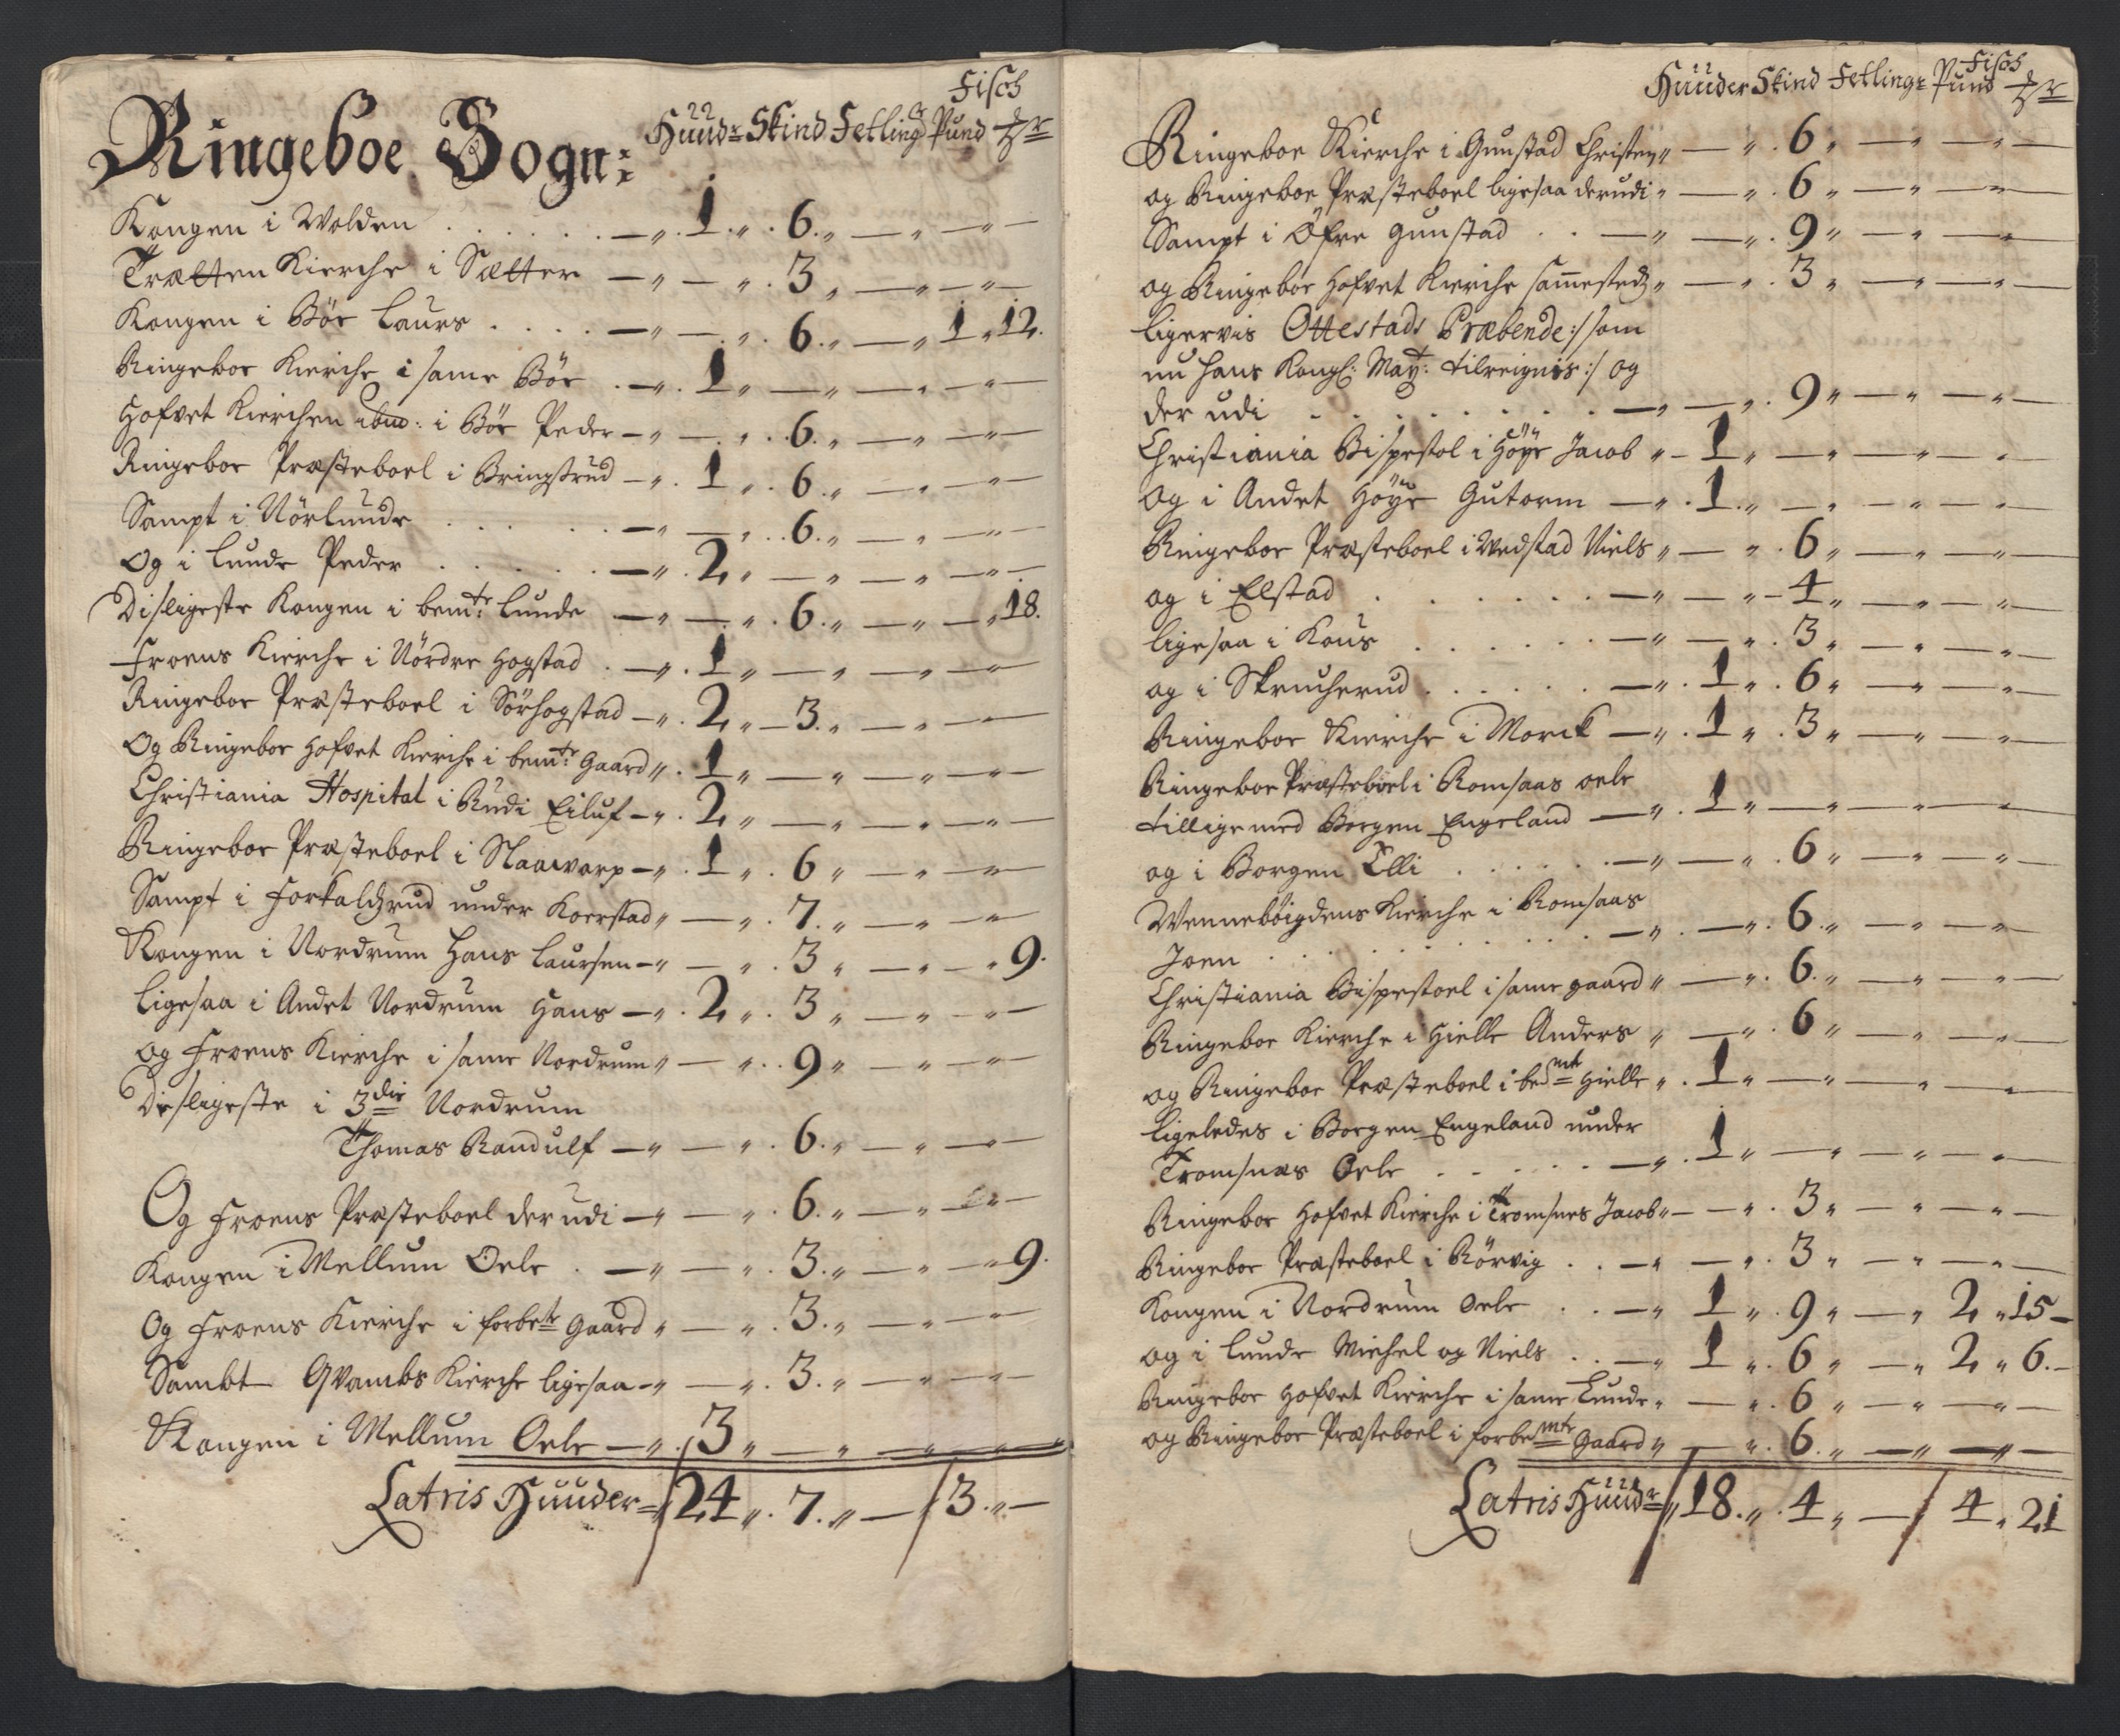 Fisch
Ringeboe Sogn: Huudr Skind Fetling Pund
Kongen i Wolden . . . . . . — „ . 1 . „ . 6 . „ — „ — „ —
Trætten Kierche i Sætter — „ — „ . 3 „ — „ — „ —
Kongen i Böe Laurs . . . . — „ — . „ . 6 . „ — „ 1 „ 12.
Ringeboe Kierche i same Böe . — „ . 1 „ — „ — „ — „ —
Hofvet Kierchen ibm: i Böe Peder — „ — . „ . . 6 . „ — „ — „ —
Ringeboe Præsteboel i Bringsrud — „ . 1 „ . 6 . „ — „ — „ —
Sampt i Nörlunde . . . . . — „ — „ . . 6 . „ — „ — „ —
Og i Lunde Peder . . . . . — „ . 2 „ — „ — „ — „ —
Disligeste Kongen i bemte: Lunde — „ — „ . 6 . „ — „ — „ 18.
Froens Kierche i Nördre Hogstad . — „ . 1 „ — „ — „ — „ —
Ringeboe Præsteboel i Sörhogstad — „ . 2 „ — 3 . „ — „ — „ —
Og Ringeboe Hofvet Kierche i bemte: Gaard „ . 1 „ — „ — „ — „ —
Christiania Hospital i Rudi Eiluf — „ . 2 „ — „ — „ — „ —
Ringeboe Præsteboel i Slaawarp — „ . 1 „ . 6 „ — „ — „ —
Sampt i Forkalsrud under Koerstad „ — „ . 7 . „ — „ — „ —
Kongen i Nordrum Hans Laursen — „ — „ . 3 „ — „ — „ 9.
Ligesaa i Andet Nordrum Hans — „ . 2 „ . 3 „ — „ — „ —
og Froens Kierche i same Nordrum „ — „ . . 9 „ — „ — „ —
Desligeste i 3die Nordrum
Thomas Randulf — „ — „ . 6 . „ — „ — „ —
Og Froens Præsteboel der udi — „ — „ . 6 . „ — „ — „ —
Kongen i Mellum Oele . — „ — „ . 3 . „ — „ — „ 9.
Og Froens Kierche i forbete Gaard „ — „ . 3 . „ — „ — „ —
Sambt Qvambs Kierche ligesaa — „ — „ . 3 . „ — „ — „ —
Kongen i Mellum Oele — „ . 3 „ — „ — „ — „ —
Latris Huuder / 24 „ . 7 . „ — / 3 . „ —
Fisch
Huuder Skind Fetlinger Pund
Ringeboe Kierche i Gunstad Christen „ — „ . 6 „ — „ — „ —
og Ringeboe Præsteboel ligesaa derudi „ — „ . 6 „ — „ — „ —
Sampt i Öfre Gunstad . . — „ — „ . 9 „ — „ — „ —
og Ringeboe Hofvet Kierche samestedz „ — „ . 3 „ — „ — „ —
ligervis Ottestads Præbende :/ som
nu Hans Kongl: Mayt: tilreignis :/ og
der udi . . . . . . . . — „ — „ . 9 „ — „ — „ —
Christiania Bispestol i Höye Jacob „ — 1 „ — „ — „ — „ —
og i Andet Höye Gutorm — „ . 1 . „ — „ — „ — „ —
Ringeboe Præsteboel i Wedstad Niels „ — „ . 6 „ — „ — „ —
og i Elstad . . . . . . — „ — „ — 4 „ — „ — „ —
ligesaa i Kous . . . . . — „ — „ . 3 „ — „ — „ —
og i Skrucherud . . . . . — „ . 1 „ . 6 „ — „ — „ —
Ringeboe Kierche i Morck — „ . 1 „ . 3 „ — „ — „ —
Ringeboe Præsteboel i Romsaas oele
tillige med Borgen Engeland — „ . 1 „ — „ — „ — „ —
og i Borgen Elli . . . . . — „ — „ . 6 „ — „ — „ —
Wennebøigdens Kierche i Romsaas
Joen . . . . . . . . . — „ . — „ . 6 . „ — „ — „ —
Christiania Bispestoel i same gaard „ — „ . 6 . „ — „ — „ —
Ringeboe Kierche i Hielle Anders „ — „ . 6 „ — „ — „ —
og Ringeboe Præsteboel i bemte Hielle „ . 1 „ — „ — „ — „ —
ligeledes i Borgen Engeland under
Tromsnæs Oele . . . . . — „ . 1 „ — „ — „ — „ —
Ringeboe Hofvet Kierche i Tromsnes Jacob „ — — „ . 3 „ — „ — „ —
Ringeboe Præsteboel i Rörvig . . — „ — „ . 3 „ — „ — „ —
Kongen i Nordrum Oele . . — „ 1 „ . 9 „ — „ 2 „ 15 —
og i Lunde Michel og Niels . . — „ 1 „ . 6 „ — „ 2 „ 6. —
Ringeboe Hofvet Kierche i same Lunde „ — „ . 6 „ — „ — „ —
og Ringeboe Præsteboel i forbemte Gaard „ — „ . 6 . „ — „ — „ —
Latris Huudr / 18 . „ . 4 „ — / 4 „ 21